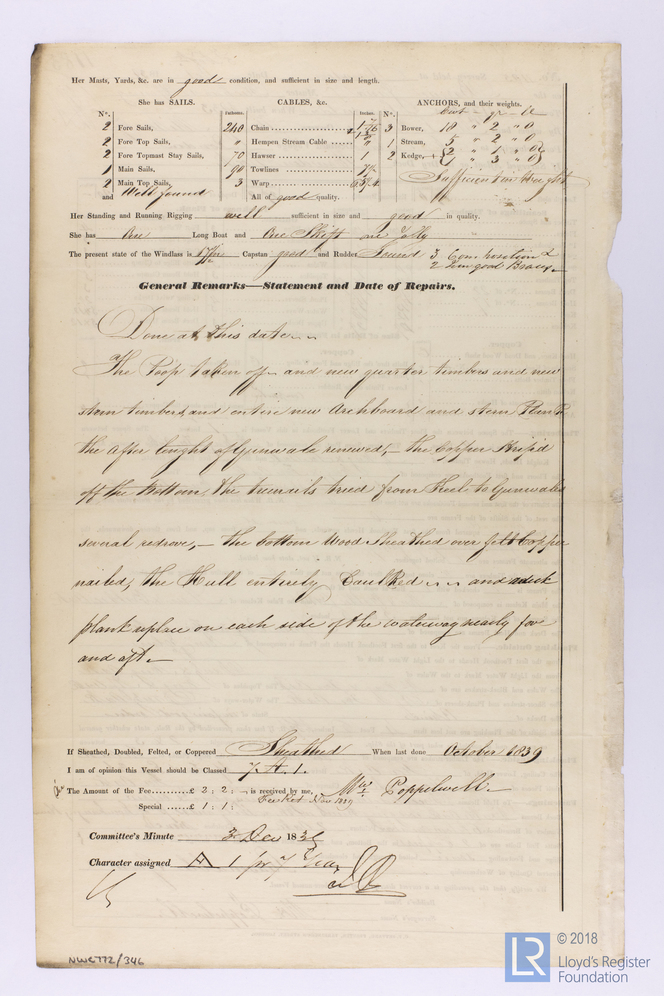 Her Masts, Yards, &c. are in good condition, and sufficient in size and length.
She has SAILS. CABLES, &c. ANCHORS, and their weights.
N°. Fathoms. Inches. N°.
2 Fore Sails, 240 Chain 3 Bower, 18 " 2 " 0
2 Fore Top Sails, " Hempen Stream Cable " 1 Stream, 5 " 2 " 0
2 Fore Topmast Stay Sails, 70 Hawser 2 Kedge, 2 " 1 " 0
1 Main Sails, 90 Towlines 1 " 3 " 0
2 Main Top Sails, 3 Warp Sufficient in Weight
and Well found All of good quality.
Her Standing and Running Rigging well sufficient in size and good in quality.
She has One Long Boat and One Skiff Jolly
The present state of the Windlass is Capstan good and Rudder Sound 3 Composition &
2 Braces
General Remarks—Statement and Date of Repairs.
Done at this date
The Poop taken off and new quarter timbers and new
stern timbers, and entire new Archboard and stern Plank
the after lenght of Gunwale renewed, — the Copper Strip'd
off the Bottom, the treenails tried from Keel to Gunwales
several redrove, — the bottom Wood Sheathed over felt Copper
nailed, the Hull entirely Caulked and a deck
plank on each side of the waterway nearly fore
and aft
If Sheathed, Doubled, Felted, or Coppered Sheathed When last done October 1839
I am of opinion this Vessel should be Classed 7. A. 1.
The Amount of the Fee......£ 2 : 2 : - is received by me, Wm. Poppelwell
Special ......£ 1 : 1 : Nov 1839
Committee's Minute 3 Dec 1839
Character assigned A 1 for 7 Years
NWC772/346
LR
© 2018
Lloyd's Register
Foundation